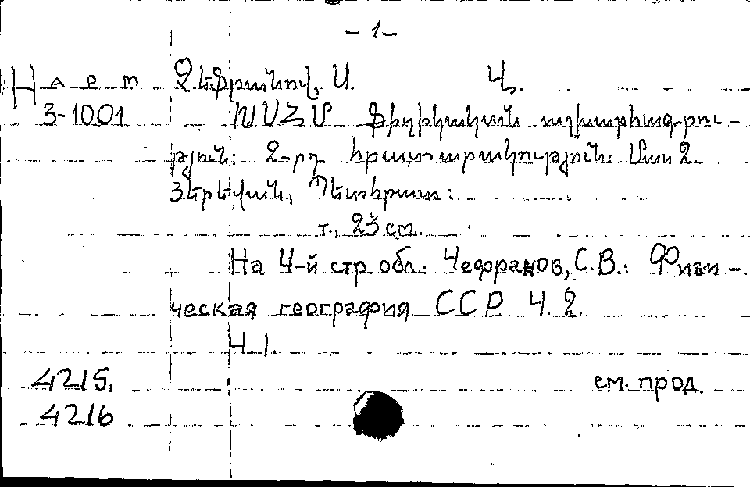 - 1 -
Н а р т Չեֆրանով, Ս. Վ.
3-1001 ԽՍՀՄ Ֆիզիկական աշխարհագրու-
թյուն: 2-րդ հրատարակություն: Մաս 2.
Յերևան, Պետհրատ:
т., 23 см.
На 4-й стр обл.: Чефранов, С.В.: Физи-
ческая география ССР Ч. 2.
Ч I.
4215, см. прод.
4216